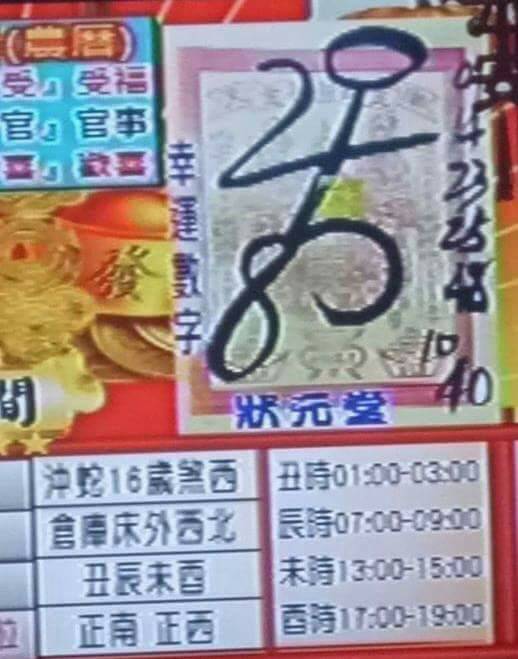 (農曆)
受』受福
官』官事
喜』歡喜
發
幸運數字
23
25
48
10
40
狀元堂
間
沖蛇16歲煞西
倉庫床外西北
丑辰未酉
正南 正西
丑時01:00-03:00
辰時07:00-09:00
未時13:00-15:00
酉時17:00-19:00